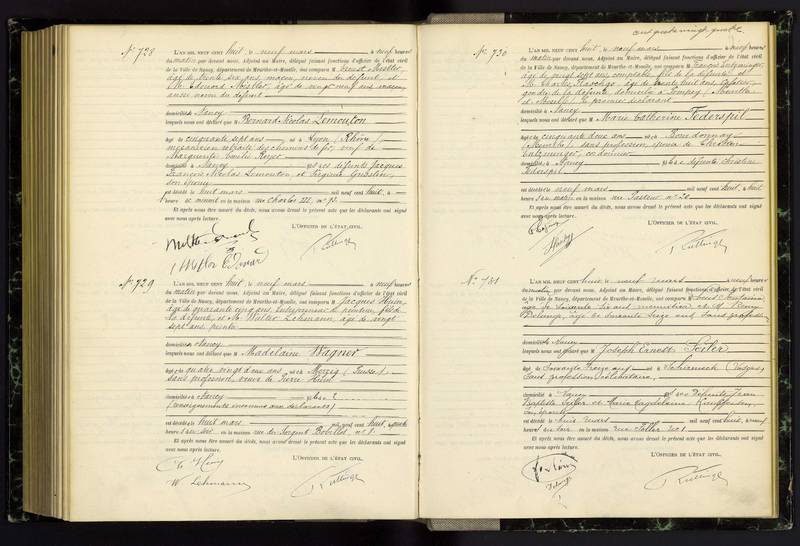 Nº 728
L'AN MIL NEUF CENT huit, le neuf mars à neuf heures
du matin par devant nous, Adjoint au Maire, délégué faisant fonctions d'officier de l'état civil
de la Ville de Nancy, département de Meurthe-et-Moselle, ont comparu M. Ernest
âgé de trente six ans, maçon, neveu du défunt, et
M. Edouard âgé de vingt neuf ans, maçon,
aussi neveu du défunt
domiciliés à Nancy
lesquels nous ont déclaré que M Bernard Nicolas Lemouton
âgé de cinquante sept ans né à Lyon (Rhône)
mécanicien retraité des chemins de fer, veuf de
Marguerite Emilie Royer
domicilié à Nancy fils des défunts Jacques
François Nicolas Lemouton et Virginie
son épouse
est décédé le huit mars mil neuf cent huit, à
heures et minuit en la maison rue Charles III, nº 73.
Et après nous être assuré du décès, nous avons dressé le présent acte que les déclarants ont signé
avec nous après lecture.
L'OFFICIER DE L'ÉTAT CIVIL,
Nº 729
L'AN MIL NEUF CENT huit, le neuf mars à neuf heures
du matin par devant nous, Adjoint au Maire, délégué faisant fonctions d'officier de l'état civil
de la Ville de Nancy, département de Meurthe-et-Moselle, ont comparu M Jacques Huin
âgé de quarante cinq ans, entrepreneur de peinture, fils de
la défunte, et M. Walter Lehmann, âgé de vingt
sept ans, peintre
domiciliés à Nancy
lesquels nous ont déclaré que M Madelaine Wagner
âgée de quatre vingt deux ans née à Merzig (Prusse)
sans profession, veuve de Pierre Huin
domiciliée à Nancy fille de ?
(renseignements inconnus aux déclarants)
est décédée le huit mars mil neuf cent huit, à
heures du soir en la maison rue du Sergent Bobillot, nº 9.
Et après nous être assuré du décès, nous avons dressé le présent acte que les déclarants ont signé
avec nous après lecture.
L'OFFICIER DE L'ÉTAT CIVIL,
W. Lehmann
cent quatre vingt quatre
Nº 730
L'AN MIL NEUF CENT huit, le neuf mars à neuf heures
du matin par devant nous, Adjoint au Maire, délégué faisant fonctions d'officier de l'état civil
de la Ville de Nancy, département de Meurthe-et-Moselle, ont comparu M François
âgé de vingt sept ans, comptable, fils de la défunte, et
M. Charles âgé de trente huit ans,
gendre de la défunte, domicilié à Pompey (Meurthe
et Moselle) le premier déclarant
domicilié à Nancy
lesquels nous ont déclaré que M Marie Catherine Federspil
âgée de cinquante deux ans née à Bourdonnay
(Meurthe) sans profession, épouse de Christian
cordonnier
domiciliée à Nancy fille de défunt Christian
Federspil
est décédée le neuf mars mil neuf cent huit, à huit
heures du matin en la maison rue Pasteur nº 20
Et après nous être assuré du décès, nous avons dressé le présent acte que les déclarants ont signé
avec nous après lecture.
L'OFFICIER DE L'ÉTAT CIVIL,
Nº 731
L'AN MIL NEUF CENT huit, le neuf mars à neuf heures
du matin, par devant nous, Adjoint au Maire, délégué faisant fonctions d'officier de l'état civil
de la Ville de Nancy, département de Meurthe-et-Moselle, ont comparu M Louis
âgé de soixante six ans et M.
Delunge, âgé de soixante seize ans, sans profession
domiciliés à Nancy
lesquels nous ont déclaré que M Joseph Ernest Seiler
âgé de soixante treize ans né à Schirmeck (Vosges),
sans profession, célibataire,
domicilié à Nancy fils de défunts Jean
Baptiste Seiler et Marie Magdelaine
son épouse
est décédé le huit mars mil neuf cent huit, à
heures du soir en la maison rue Saller nº 1
Et après nous être assuré du décès, nous avons dressé le présent acte que les déclarants ont signé
avec nous après lecture.
L'OFFICIER DE L'ÉTAT CIVIL,